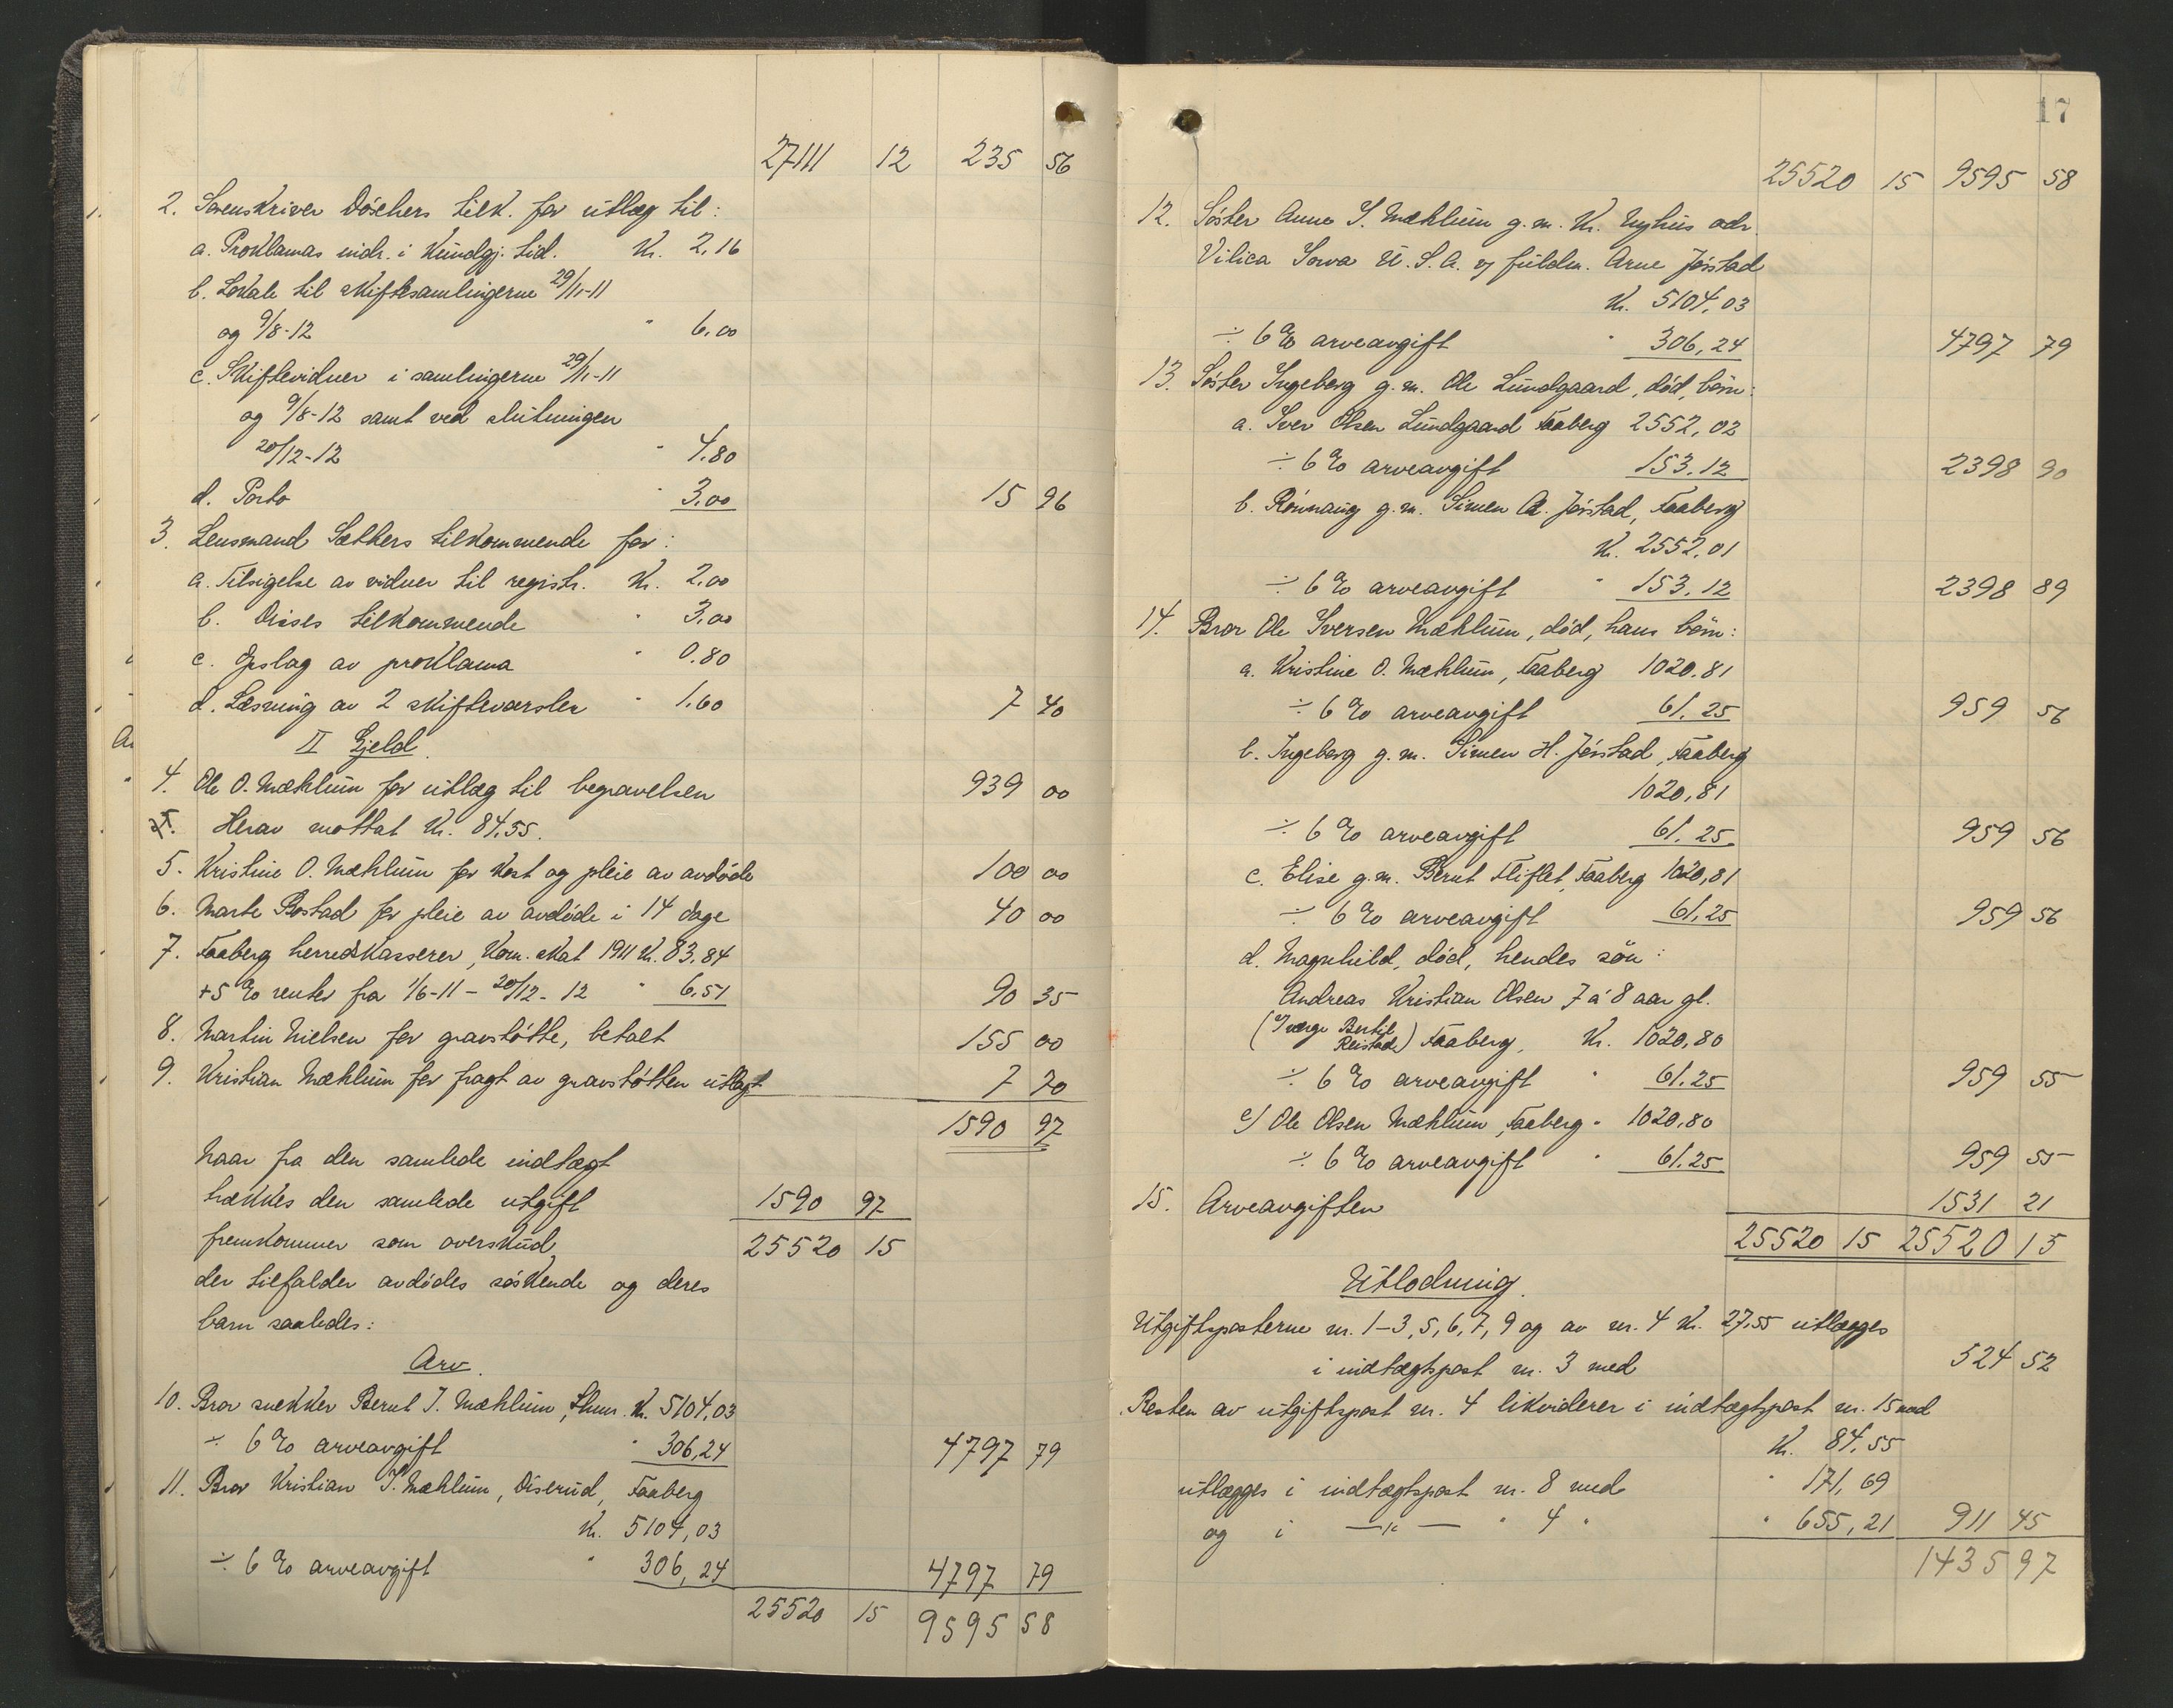 27111 12 235 56
2. Sorenskriver Döschers tilk. for utlæg til:
a. Proklamas indr. i Kundgj. tid. Kr. 2,16
b. Lokale til skiftesamlingerne 29/11-11
og 9/8-12 " 6,00
c. Skiftevidner i samlingerne 29/11-11
og 9/8-12 samt ved slutningen
20/12-12 " 4.80
d. Porto " 3,00 15 96
3. Lensmand Sæthers tilkommende for:
a. Tilsigelse av vidner til registr. Kr. 2,00
b. Disses tilkommende " 3,00
c. Opslag av proklama " 0.80
d. Læsning av 2 skiftevarsler " 1.60 7 40
II Gjeld.
4. Ole O. Mæhlum for utlæg til begravelsen 939 00
Herav mottat Kr. 84,55.
5. Kristine O. Mæhlum for kost og pleie av avdöde 100 00
6. Marte Rostad for pleie av avdöde i 14 dage 40 00
7. Faaberg herredskasserer, Kom. skat 1911 Kr. 83,84
+5 % renter fra 1/6-11 - 20/12-12 " 6,51 90 35
8. Martin Nielsen for gravstötte, betalt 155 00
9. Kristian Mæhlum for fragt av gravstötten utlagt 7 70
1590 97
Naar fra den samlede indtægt
trækkes den samlede utgift 1590 97
fremkommer som overskud 25520 15
der tilfalder avdödes söskende og deres
barn saaledes:
Arv.
10. Bror snekker Bernt I. Mæhlum, Lhmr. Kr. 5104,03
÷ 6 % arveavgift " 306,24 4797 79
11. Bror Kristian I. Mæhlum, Diserud, Faaberg
Kr. 5104,03
÷ 6 % arveavgift " 306,24 4797 79
25520 15 9595 58
17
25520 15 9595 58
12. Söster Anne I. Mæhlum g.m. Kr. Nyhus adr.
Vilica Iowa U.S.A. v/ fuldm. Arne Jörstad
Kr. 5104,03
÷ 6 % arveavgift " 306,24 4797 79
13. Söster Ingeborg g.m. Ole Lundgaard, död, börn:
a. Iver Olsen Lundgaard Faaberg 2552,02
÷ 6 % arveavgift 153.12 2398 90
b. Rönnaug g.m. Simen A. Jörstad, Faaberg
Kr. 2552,01
÷ 6 % arveavgift " 153.12 2398 89
14. Bror Ole Iversen Mæhlum, död, hans börn:
a. Kristine O. Mæhlum, Faaberg 1020.81
÷ 6 % arveavgift 61.25 959 56
b. Ingeborg g.m. Simen H. Jörstad, Faaberg
1020,81
÷ 6 % arveavgift 61.25 959 56
c. Elise g.m. Bernt Fliflet, Faaberg 1020,81
÷ 6 % arveavgift 61,25 959 56
d. Magnhild, död, hendes sön:
Andreas Kristian Olsen 7 á 8 aar gl.
(Værge Bertil
Reistad) Faaberg, Kr. 1020,80
÷ 6 % arveavgift " 61.25 959 55
e) Ole Olsen Mæhlum, Faaberg " 1020,80
÷ 6 % arveavgift " 61.25 959 55
15. Arveavgiften 1531 21
25520 15 25520 15
Utlodning.
Utgiftsposterne nr. 1-3, 5, 6, 7, 9 og av nr. 4 Kr. 27,55 utlægges
i indtægtspost nr. 3 med 524 52
Resten av utgiftspost nr. 4 likviderer i indtægtspost nr. 15 med
Kr. 84,55
utlægges i indtægtspost nr. 8 med " 171,69
og i —"— " 4 " " 655,21 911 45
1435 97